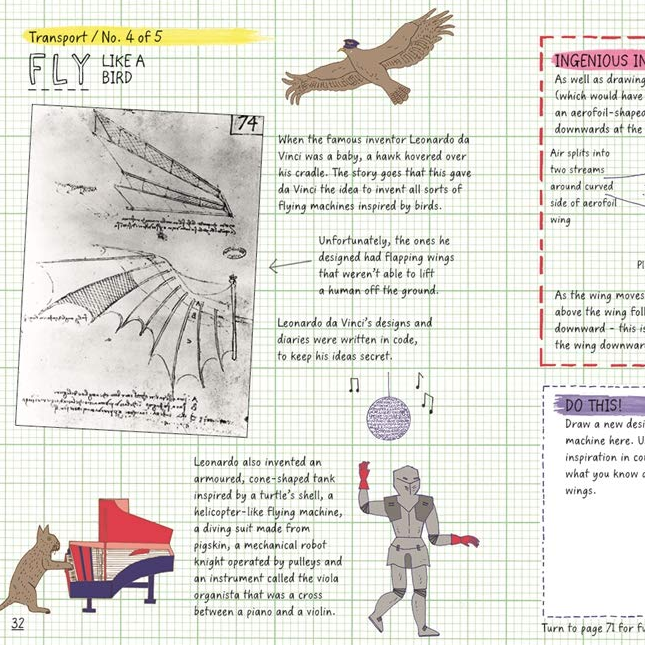 Transport / No. 4 of 5
FLY LIKE A
BIRD
74
When the famous inventor Leonardo da
Vinci was a baby, a hawk hovered over
his cradle. The story goes that this gave
da Vinci the idea to invent all sorts of
flying machines inspired by birds.
Unfortunately, the ones he
designed had flapping wings
that weren't able to lift
a human off the ground.
Leonardo da Vinci's designs and
diaries were written in code,
to keep his ideas secret.
Leonardo also invented an
armoured, cone-shaped tank
inspired by a turtle's shell, a
helicopter-like flying machine,
a diving suit made from
pigskin, a mechanical robot
knight operated by pulleys and
an instrument called the viola
organista that was a cross
between a piano and a violin.
32
INGENIOUS IN
As well as drawing
(which would have
an aerofoil-shaped
downwards at the
Air splits into
two streams
around curved
side of aerofoil
wing
Pl
As the wing moves
above the wing foll
downward - this is
the wing downwar
DO THIS!
Draw a new desi
machine here. U
inspiration in co
what you know a
wings.
Turn to page 71 for fu